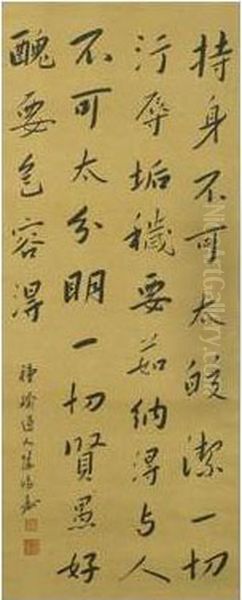 持身不可太皎潔一切
污辱垢穢要茹納得与人
不可太分明一切賢愚好
醜要包容得
種瑜道人陳鴻壽
NightGallery.com